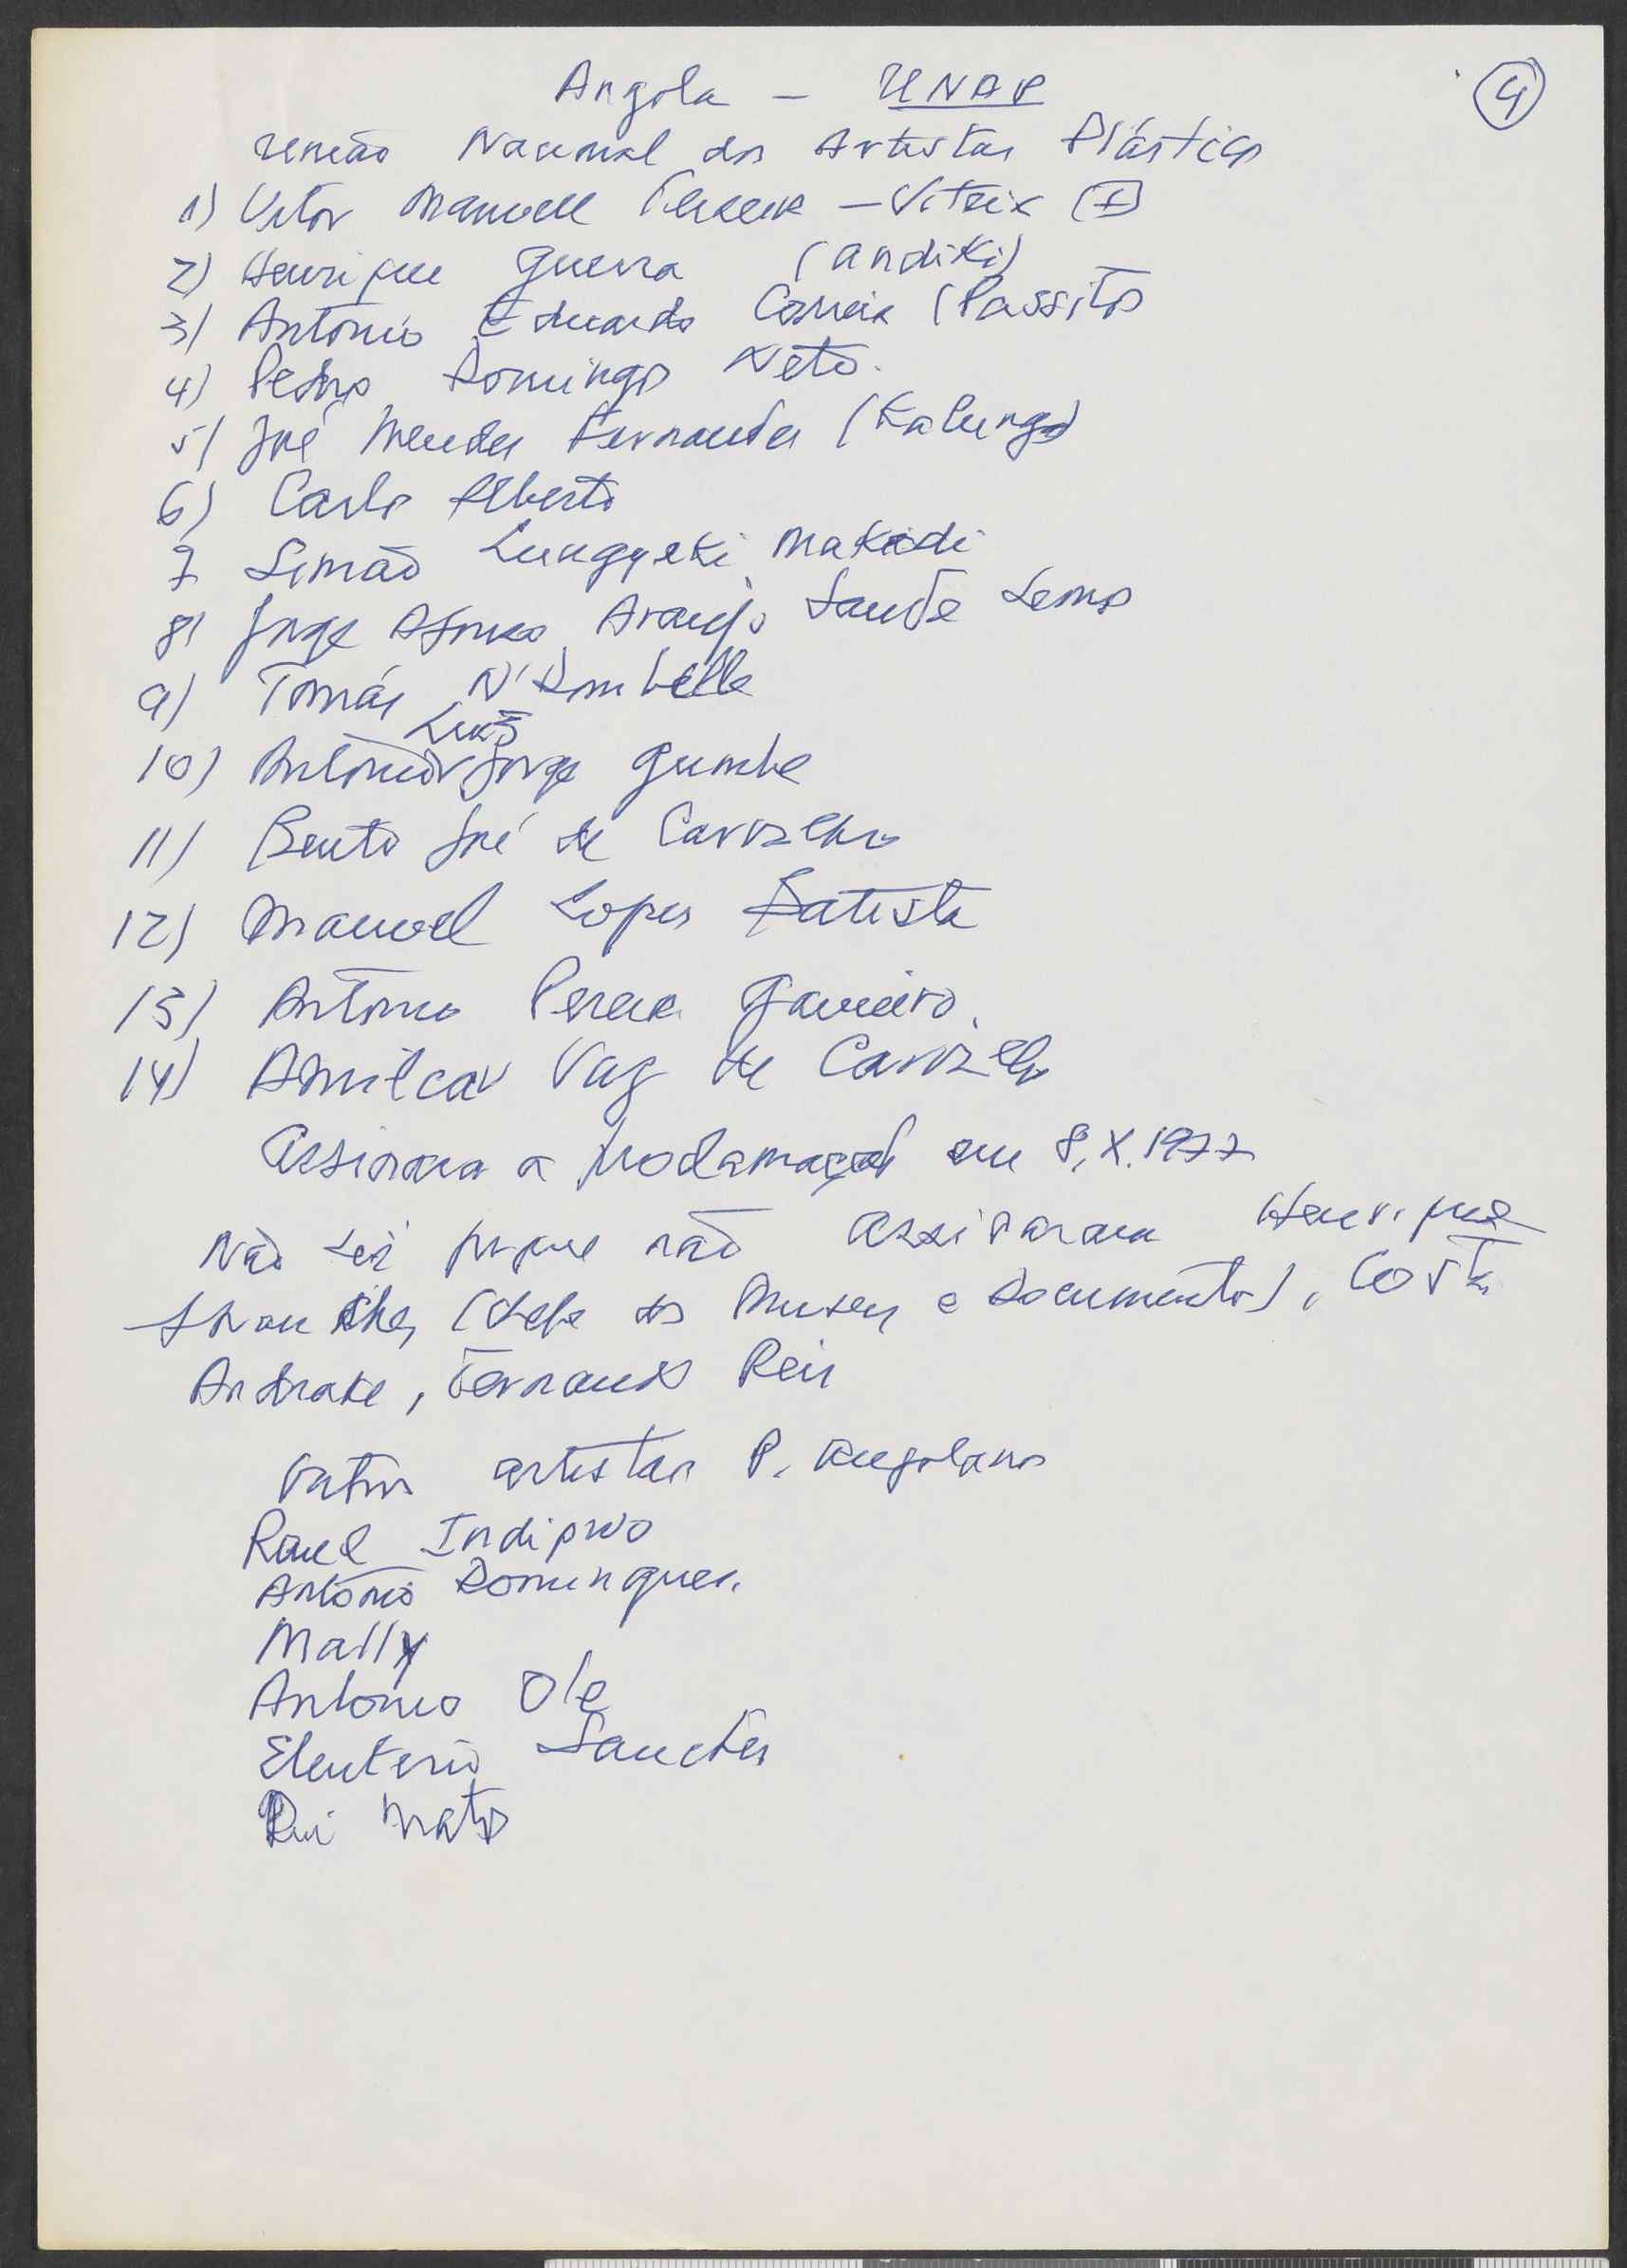 Angola — UNAP
4
União Nacional dos Artistas Plásticos
1) Vitor Manuel Teixeira — Viteix (+)
2) Henrique Guerra (Andiki)
3) António Eduardo Correia (Passitos
4) Pedro Domingos Neto.
5) José Mendes Fernandes (Kalunga)
6) Carlos Alberto
7 Simão Makidi
8) Jorge Afonso Araujo Lemos
9) Tomás N'Dombele
Luís
10) António Jorge Gumbe
11) Bento José de Carvalho
12) Manuel Lopes Batista
13) António Pereira
14) Amílcar Vaz de Carvalho
Assinaram a proclamação em 8.X.1977
Não sei porque não assinaram Henrique
Abranches (chefe dos Museus e Documentos), Costa
Andrade, Fernando Reis
Outros artistas P. angolanos
Raul Indipwo
António Domingues.
Mally
António Ole
Eleuterio Sanches
Rui Matos